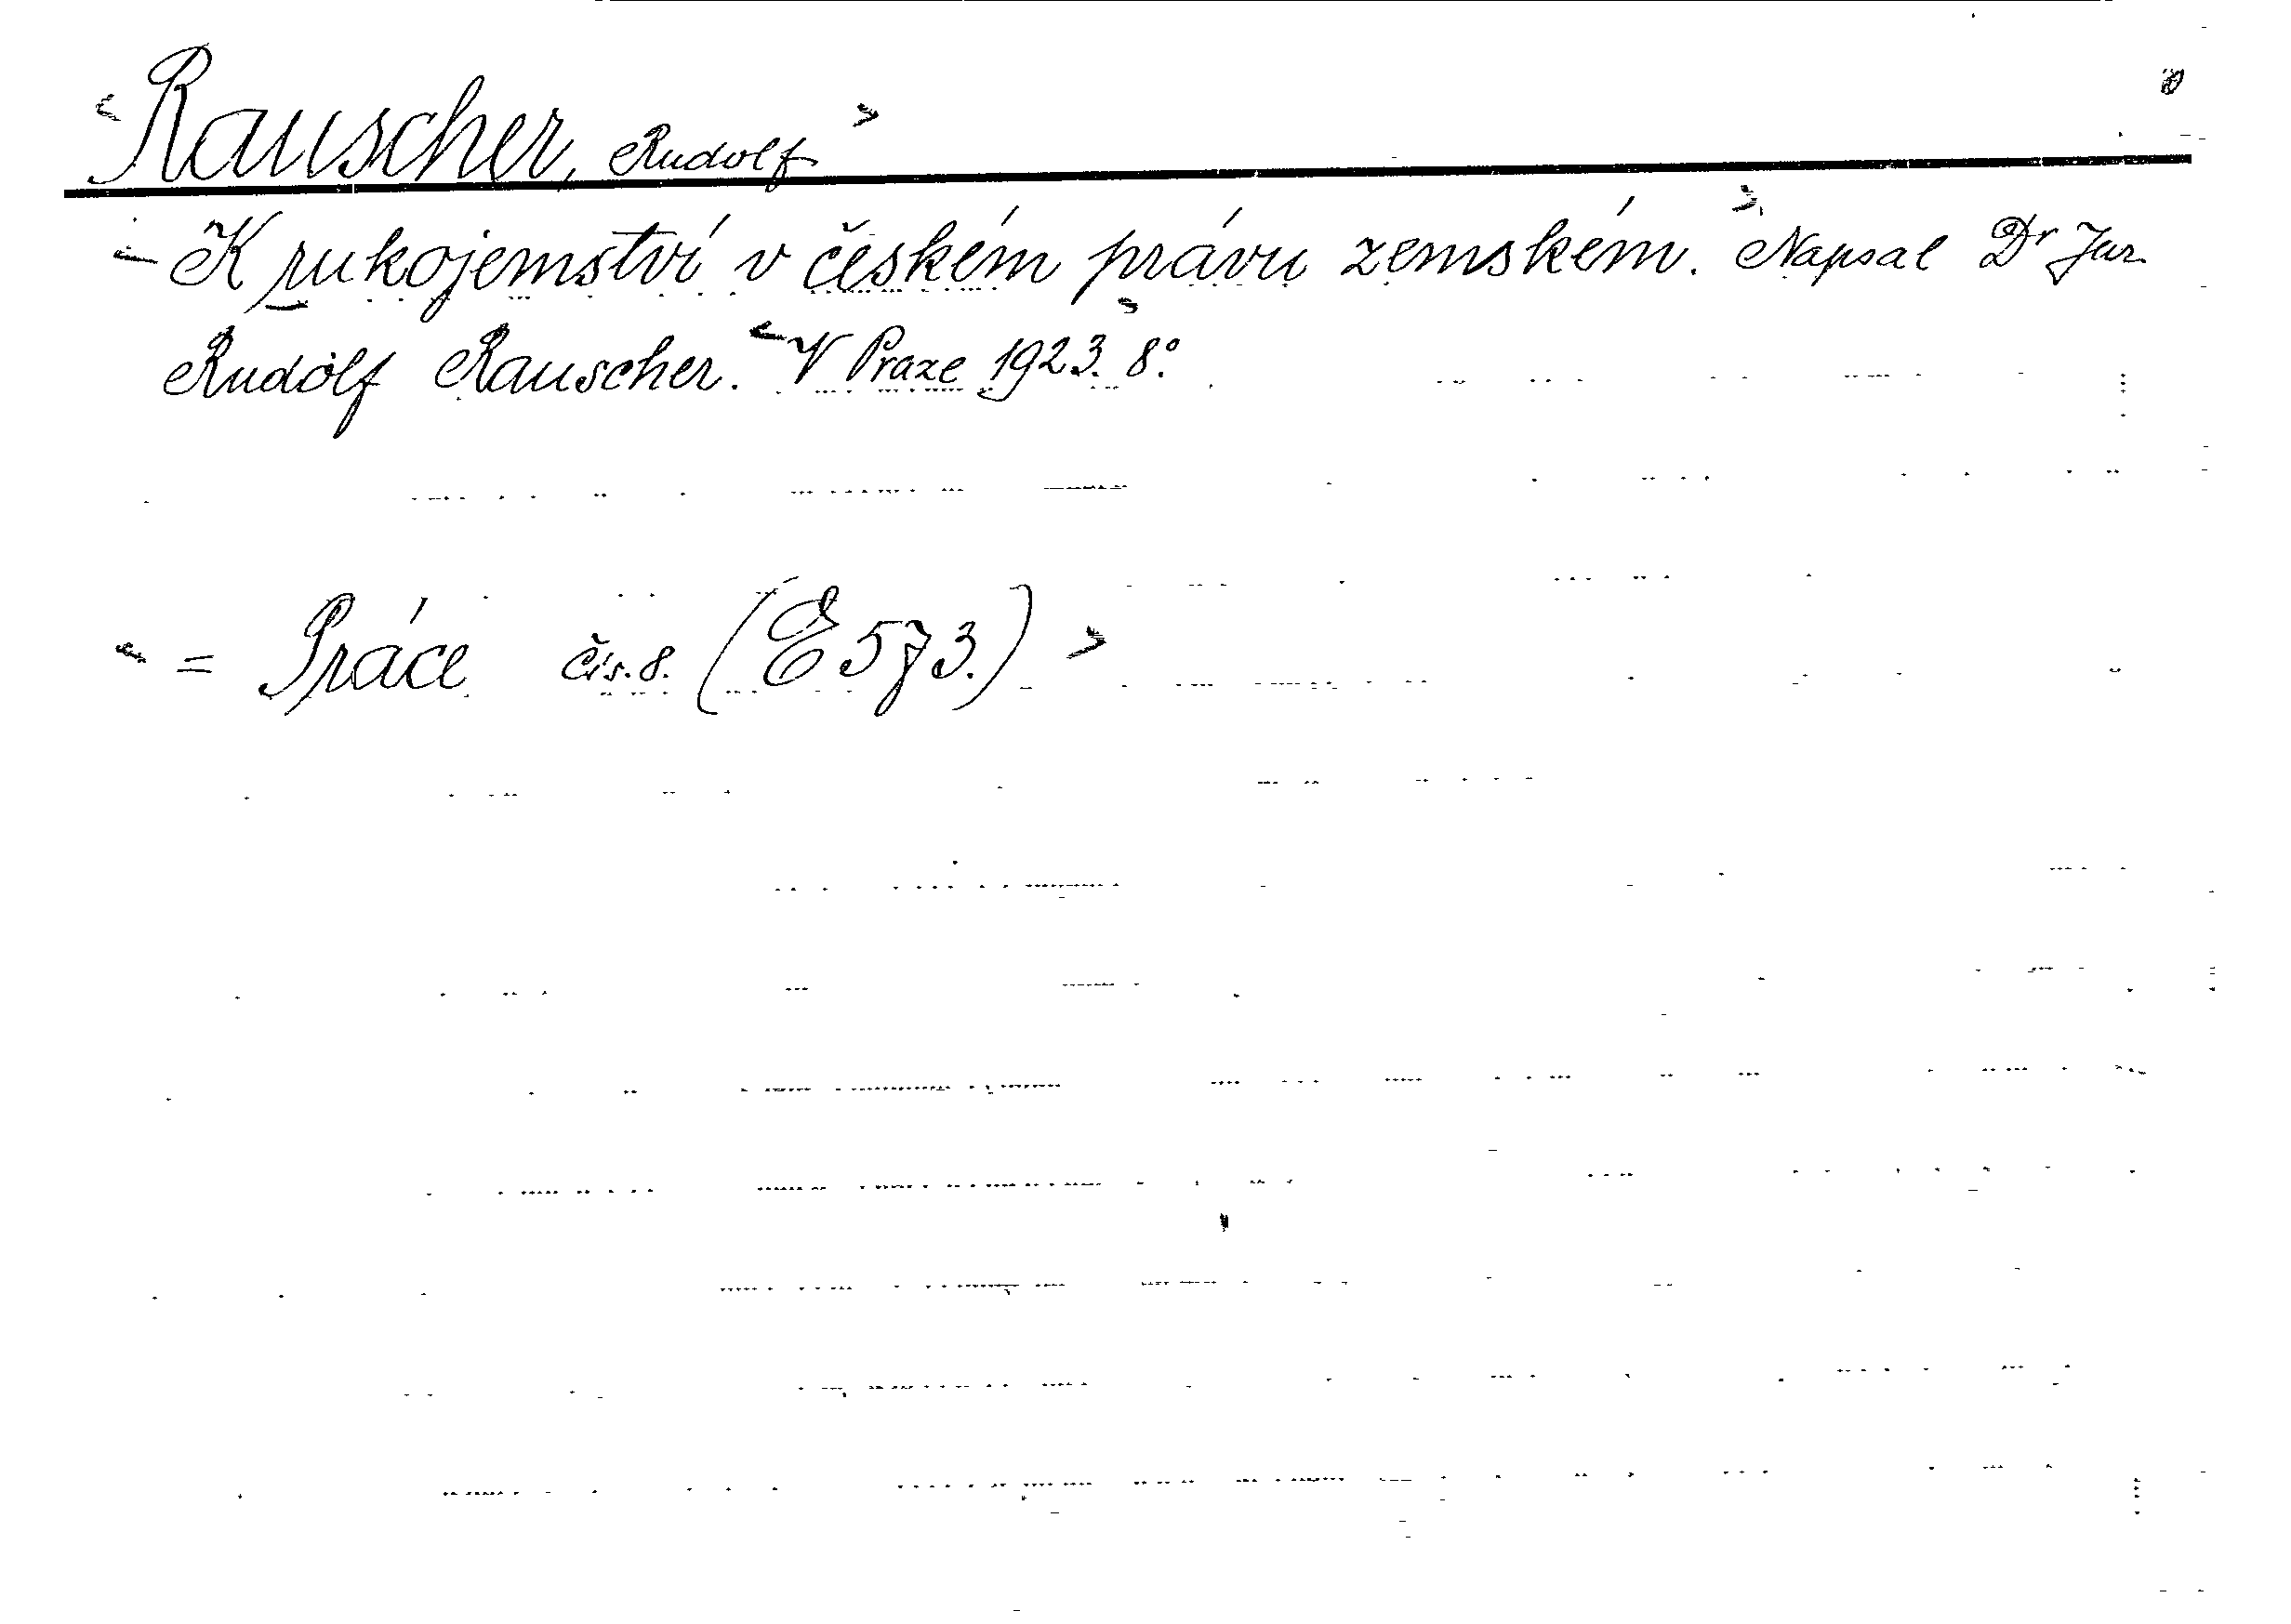 Rauscher, Rudolf
K rukojemství v českém právu zemském. Napsal Dr Jur
Rudolf Rauscher. V Praze 1923. 8°.
= Práce čís. 8. (E 573.)